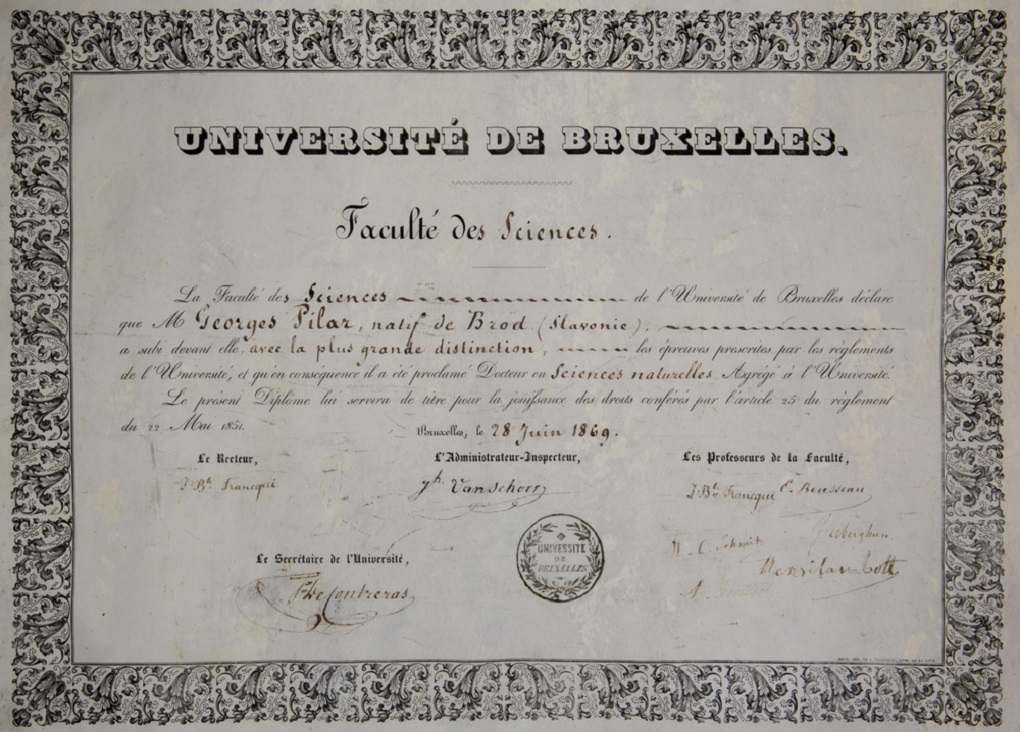 UNIVERSITÉ DE BRUXELLES.
Faculté des Sciences.
La Faculté des Sciences de l'Université de Bruxelles déclare
que M Georges Pilar, natif de Brod (Slavonie),
a subi devant elle, avec la plus grande distinction, les épreuves prescrites par les règlements
de l'Université, et qu'en conséquence il a été proclamé Docteur en Sciences naturelles Agrégé à l'Université.
Le présent Diplôme lui servira de titre pour la jouissance des droits conférés par l'article 25 du règlement
du 22 Mai 1851.
Bruxelles, le 28 Juin 1869.
Le Recteur,
L'Administrateur-Inspecteur,
Les Professeurs de la Faculté,
J. Bte Francqui
Jh. Van Schoor
J. Bte Francqui E. Rousseau
Le Secrétaire de l'Université,
UNIVERSITE
DE
BRUXELLES